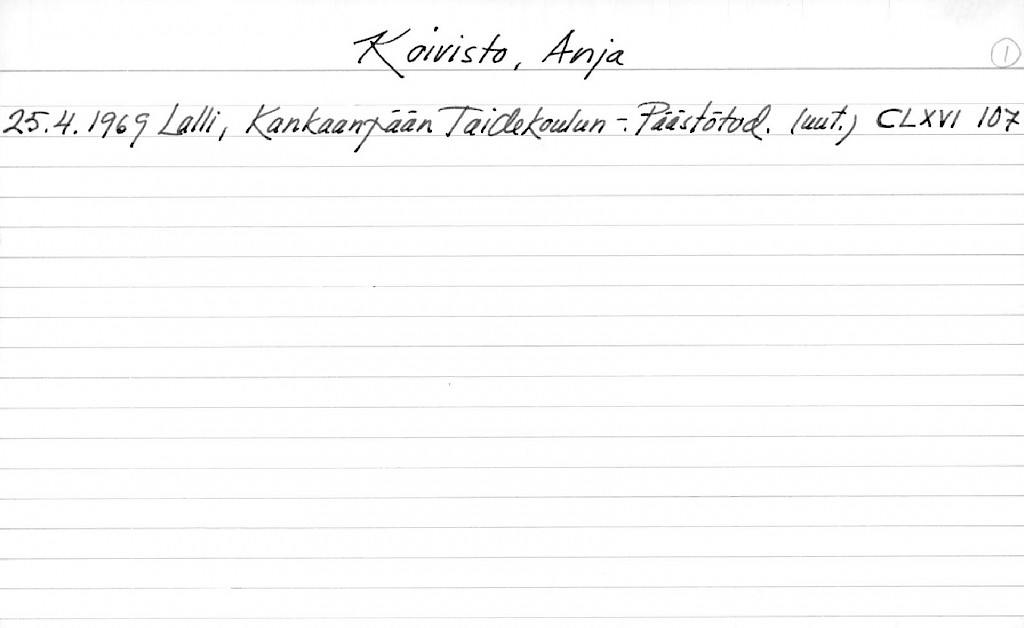 Koivisto, Anja
1
25.4.1969 Lalli, Kankaanpään Taidekoulun -. Päästötod. (uut.) CLXVI 107